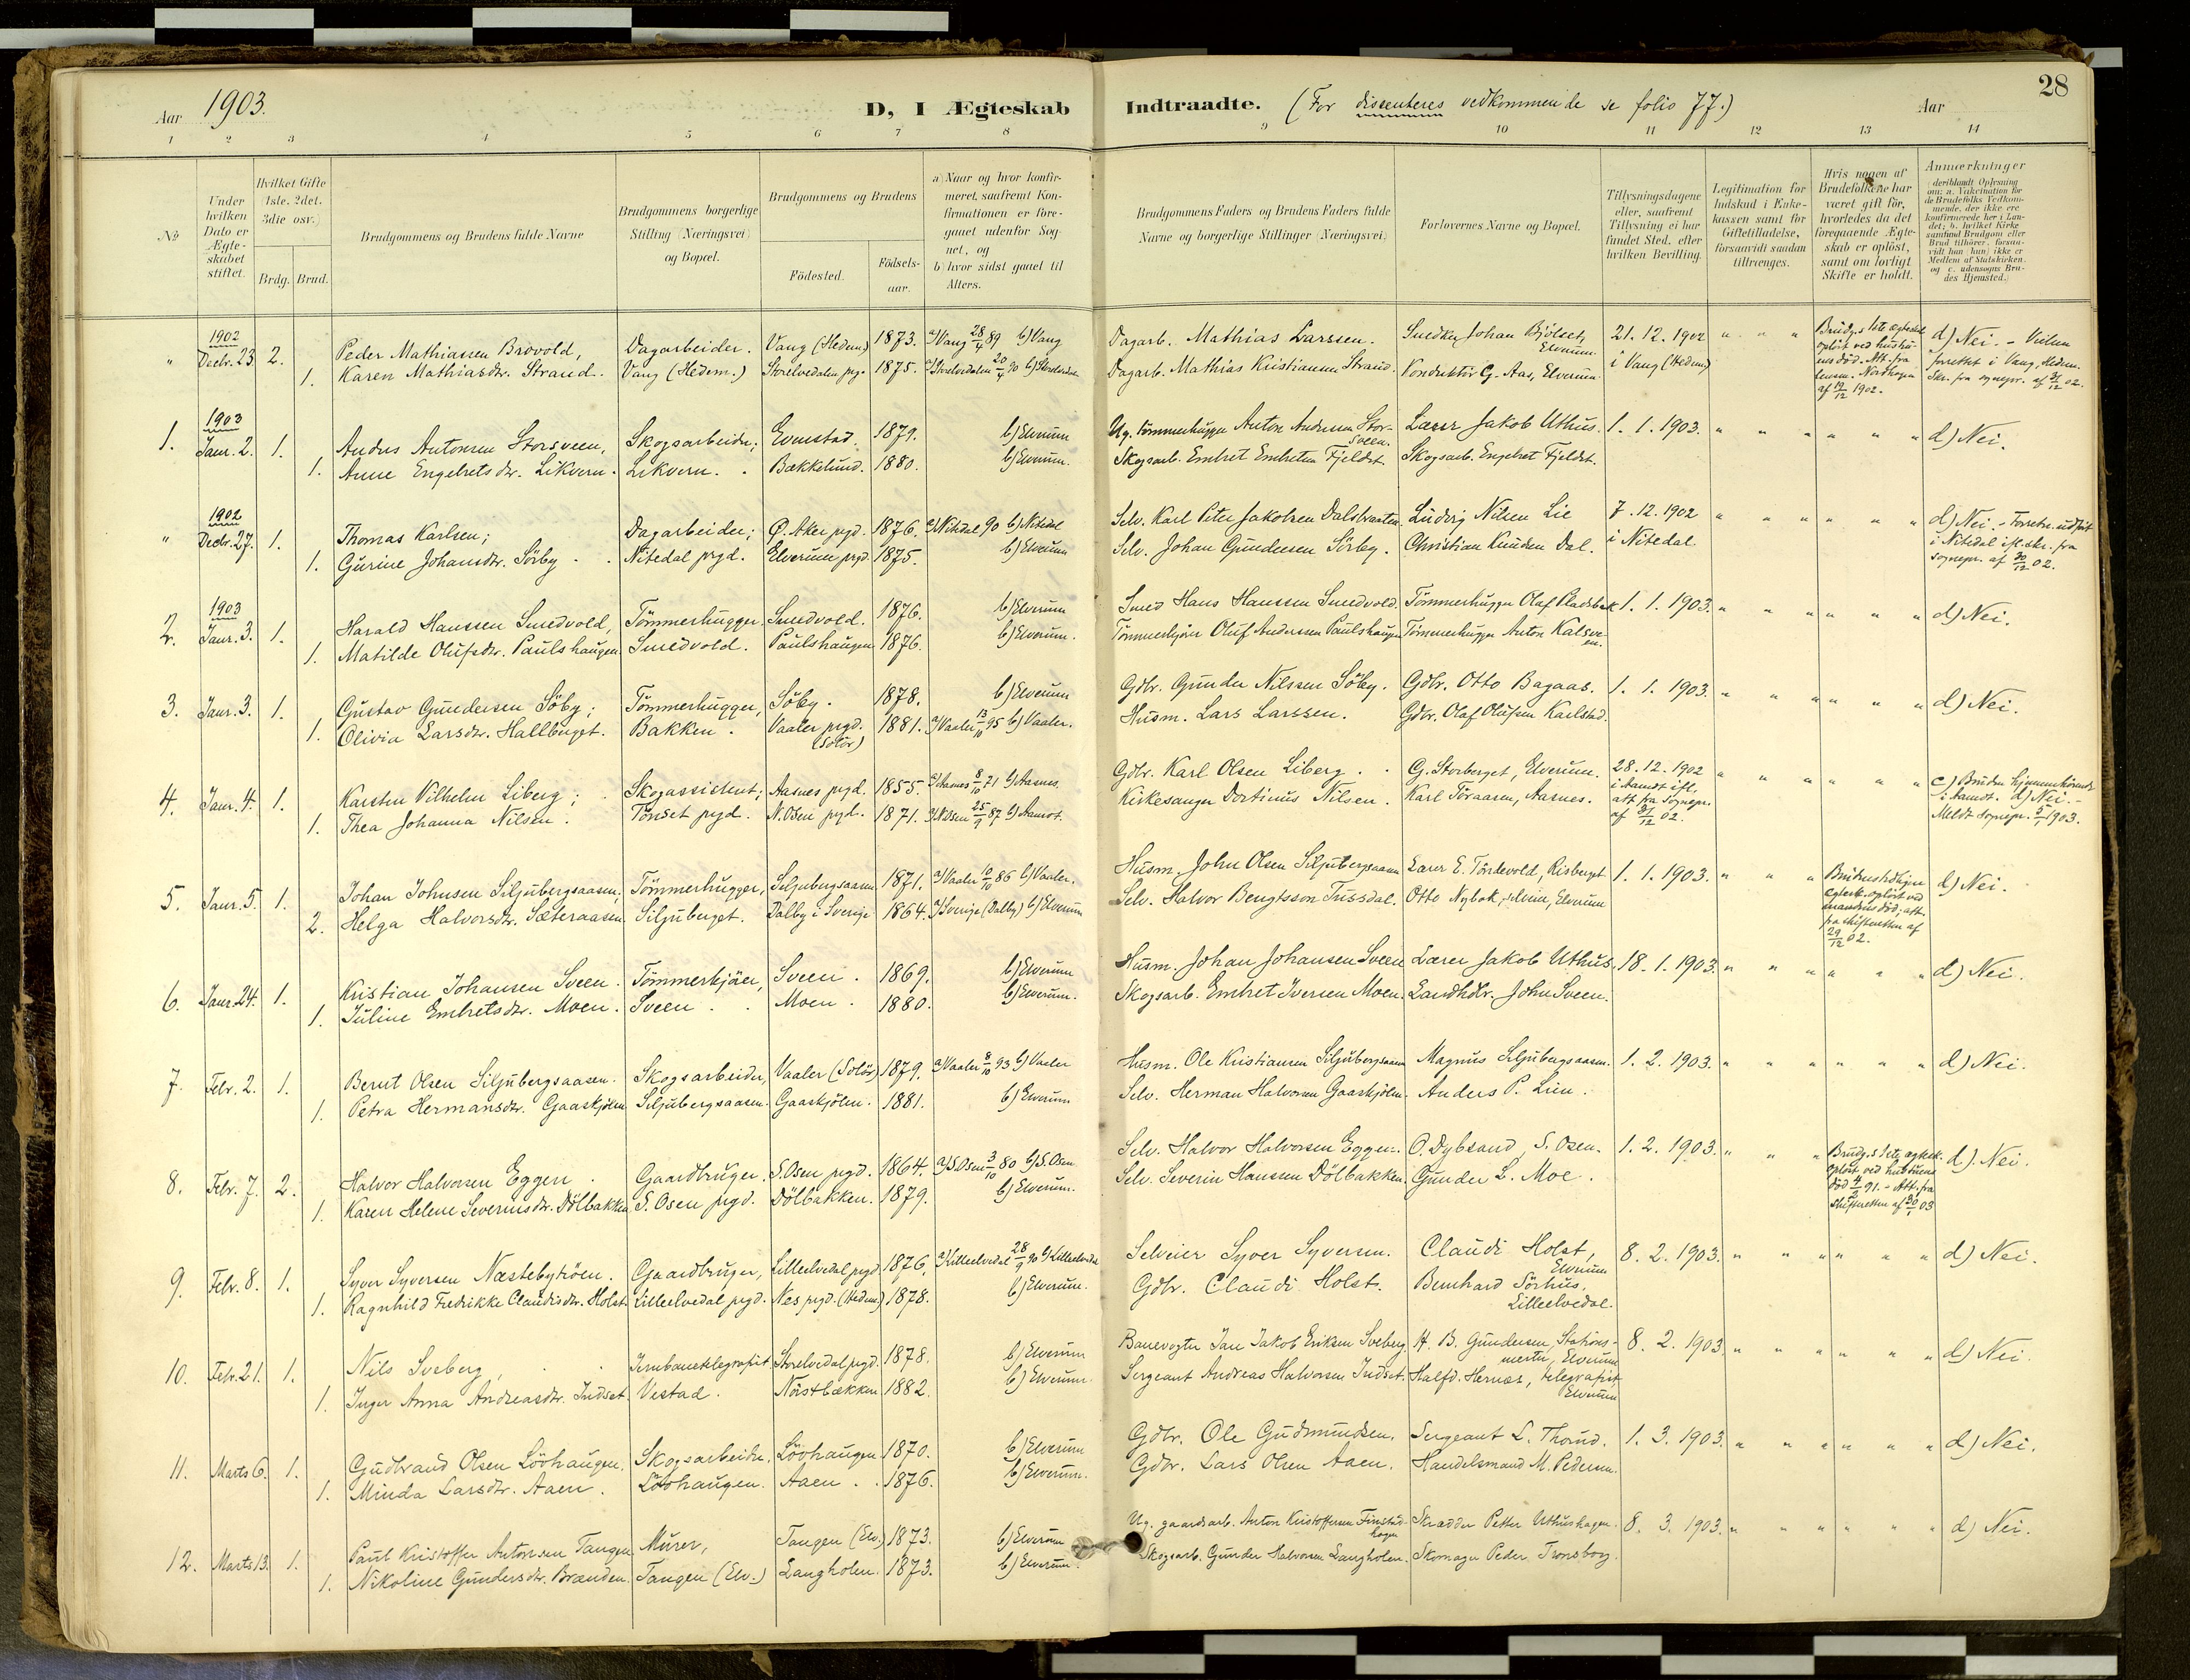 28
Aar 1903.
D, I Ægteskab Indtraadte. (For dissenteres vedkommende se folio 77.) Aar
1 2 3 4 5 6 7 8 9 10 11 12 13 14
No
Under hvilken Dato er Ægteskabet stiftet.
Hvilket Gifte (1ste. 2det. 3die osv.)
Brdg. Brud.
Brudgommens og Brudens fulde Navne
Brudgommens borgerlige Stilling (Næringsvei) og Bopæl.
Brudgommens og Brudens
Födested. Födselsaar.
a) Naar og hvor konfirmeret, saafremt Konfirmationen er foregaaet udenfor Sognet, og
b) hvor sidst gaaet til Alters.
Brudgommens Faders og Brudens Faders fulde Navne og borgerlige Stillinger (Næringsvei)
Forlovernes Navne og Bopæl.
Tillysningsdagene eller, saafremt Tillysning ei har fundet Sted, efter hvilken Bevilling.
Legitimation for Indskud i Enkekassen samt for Giftetilladelse, forsaavidt saadan tiltrænges.
Hvis nogen af Brudefolkene har været gift för, hvorledes da det foregaaende Ægteskab er oplöst, samt om lovligt Skifte er holdt.
Anmærkninger (deriblandt Oplysning om: a. Vakcination for de Brudefolks Vedkommende, der ikke ere konfirmerede her i Landet; b. hvilket Kirkesamfund Brudgom eller Brud tilhörer, forsaavidt han (hun) ikke er Medlem af Statskirken, og c. udensogns Brudes Hjemsted.)
1902
" Decbr. 23. 2. Peder Mathiassen Brovold, Dagarbeider. Vang (Hedem) 1873. a) Vang 28/4 89 b) Vang Dagarb. Mathias Larssen. Snedker Johan Bjölset, Elverum. 21.12.1902 " " " Brudg.s 1ste ægteskab oplöst ved hustruens död. Att. fra lensm. Nordhagen af 19/12 1902. d) Nei. - Vielsen
1. Karen Mathiasdtr. Strand. Vang (Hedem.) Storelvedalen prg. 1875. a) Storelvedalen 20/4 90 b) Storelvedalen Dagarb. Mathias Kristiansen Strand. Konduktör G. Aas, Elverum. i Vang (Hedem) forrettet i Vang, Hedem. Skr. fra sognepr. af 31/12 02.
1903
1. Janr. 2. 1. Anders Antonsen Storsveen, Skogsarbeider; Evenstad. 1879. b) Elverum Ug. tömmerhugger Anton Andersen Storsveen. Lærer Jakob Uthus. 1. 1. 1903. " " " " " " d) Nei.
1. Anne Engebretsdtr. Likvern. Likvern. Bækkelund. 1880. b) Elverum. Skogsarb. Embret Embretsen Fjeldset. Skogsarb. Engebret Fjeldset.
1902
" Decbr. 27. 1. Thomas Karlsen; Dagarbeider; Ø. Aker prgd. 1876. a) Nitedal 90 b) Nitedal Selv. Karl Peter Jakobsen Dalsbraaten. Ludvig Nilsen Lie 7.12.1902 " " " " " " d) Nei. - Forretn. udfört
1. Gurine Johansdtr. Sörby. Nitedal prgd. Elverum prgd. 1875. b) Elverum Selv. Johan Gundersen Sörby. Christian Knudsen Dal. i Nitedal. i Nitedal ifl. skr. fra sognepr. af 30/12 02.
1903
2. Janr. 3. 1. Harald Hanssen Smedvold, Tömmerhugger. Smedvold. 1876. b) Elverum Smed Hans Hanssen Smedvold. Tömmerhugger Olaf Pladsbak 1. 1. 1903. " " " " " " d) Nei.
1. Matilde Olufsdtr. Paulshaugen. Smedvold. Paulshaugen 1876. b) Elverum. Tömmerkjörer Oluf Anderssen Paulshaugen Tömmerhugger Anton Kalsveen.
3. Janr. 3. 1. Gustav Gundersen Söby; Tömmerhugger, Söby. 1878. b) Elverum Gdbr. Gunder Nilssen Söby. Gdbr. Otto Bagaas. 1. 1. 1903. " " " " " " d) Nei.
1. Olivia Larsdtr. Hallberget. Bakken. Vaaler prgd. (Solör) 1881. a) Vaaler 13/10 95 b) Vaaler. Husm. Lars Larssen. Gdbr. Olaf Olufsen Karlstad.
4. Janr. 4. 1. Karsten Vilhelm Liberg; Skogassistent; Aasnes prgd. 1855. a) Aasnes 8/10 71 b) Aasnes. Gdbr. Karl Olsen Liberg. G. Storberget, Elverum. 28.12.1902 " " " " " " c) Bruden hjemmehörende
1. Thea Johanna Nilsen. Tönset prgd. N. Osen prgd. 1871. a) N. Osen 25/9 87 b) Aamot. Kirkesanger Dortinus Nilsen. Karl Toraasen, Aasnes. i Aamot ifl. att. fra Sognepr. af 31/12 02. i Aamot. d) Nei. - Meldt sognepr. 5/1 1903.
5. Janr. 5. 1. Johan Johnsen Siljubergsaasen; Tömmerhugger, Siljubergsaasen 1871. a) Vaaler 10/10 86 b) Vaaler. Husm. John Olsen Siljubergsaasen Lærer E. Tördevold, Risberget 1. 1. 1903. " " " Brudens tidligere ægtesk. oplöst ved mandens död; att. fra skifteretten af 29/12 02. d) Nei.
2. Helga Halvorsdtr. Sæteraasen. Siljuberget. Dalby i Sverige 1864. a) Sverige (Dalby) b) Elverum Selv. Halvor Bengtsson Tussdal. Otto Nybak, selveier, Elverum
6. Janr. 24. 1. Kristian Johansen Sveen. Tömmerkjörer, Sveen. 1869. b) Elverum Husm. Johan Johansen Sveen Lærer Jakob Uthus. 18. 1. 1903. " " " " " " d) Nei.
1. Juline Embretsdtr. Moen. Sveen. Moen. 1880. b) Elverum. Skogsarb. Embret Iversen Moen. Landhdlr. John Sveen.
7. Febr. 2. 1. Bernt Olsen Siljubergsaasen. Skogsarbeider, Vaaler (Solör) 1879. a) Vaaler 8/10 93 b) Vaaler Husm. Ole Kristiansen Siljubergsaasen Magnus Siljubergsaasen. 1. 2. 1903. " " " " " " d) Nei.
1. Petra Hermansdtr. Gaaskjölen. Siljubergsaasen. Gaaskjölen. 1881. b) Elverum Selv. Herman Halvorsen Gaaskjölen. Anders P. Lien.
8. Febr. 7. 2. Halvor Halvorsen Eggen. Gaardbruger. S. Osen prgd. 1864. a) S. Osen 3/10 80 b) S. Osen Selv. Halvor Halvorsen Eggen. O. Dybsand, S. Osen. 1. 2. 1903. " " " Brudg.s 1ste ægtesk. oplöst ved hustruens död 4/2 91. - Att. fra skifteretten af 30/1 03 d) Nei.
1. Karen Helene Severinsdtr. Dölbakken. S. Osen prgd. Dölbakken. 1879. b) Elverum. Selv. Severin Hansen Dölbakken. Gunder L. Moe.
9. Febr. 8. 1. Syver Syversen Næstebytröen. Gaardbruger, Lilleelvedal prgd 1876. a) Lilleelvedal 28/9 90 b) Lilleelvedal Selveier Syver Syversen. Claudi Holst, Elverum 8. 2. 1903. " " " " " " d) Nei.
1. Ragnhild Fredrikke Claudisdtr. Holst. Lilleelvedal prgd. Nes prgd. (Hedem) 1878. b) Elverum. Gdbr. Claudi Holst. Bernhard Sörhus, Lilleelvedal.
10. Febr. 21. 1. Nils Sveberg, Jernbanetelegrafist. Storelvedal prgd. 1878. b) Elverum Banevogter Jan Jakob Eriksen Sveberg. H. B. Gundersen, Stationsmester, Elverum 8. 2. 1903. " " " " " " d) Nei.
1. Inger Anna Andreasdtr. Indset. Vestad. Nörstbækken 1882. b) Elverum. Sergeant Andreas Halvorsen Indset. Halfd. Hernæs, telegrafist Elverum
11. Marts 6. 1. Gudbrand Olsen Lövhaugen. Skogsarbeider. Lövhaugen 1870. b) Elverum Gdbr. Ole Gudmundsen. Sergeant L. Thorud. 1. 3. 1903. " " " " " " d) Nei.
1. Minda Larsdtr. Aaen. Lövhaugen. Aaen. 1876. b) Elverum. Gdbr. Lars Olsen Aaen. Handelsmand M. Pedersen.
12. Marts 13. 1. Paul Kristoffer Antonsen Tangen Murer, Tangen (Elv.) 1873. b) Elverum Ug. gaardsarb. Anton Kristoffersen Finstadhagen Skrædder Petter Uthushagen. 8. 3. 1903. " " " " " " d) Nei.
1. Nikoline Gundersdtr. Brænden. Tangen (Elv.) Langholen. 1873. b) Elverum. Skogsarb. Gunder Halvorsen Langholen. Skomager Peder Tronsborg.